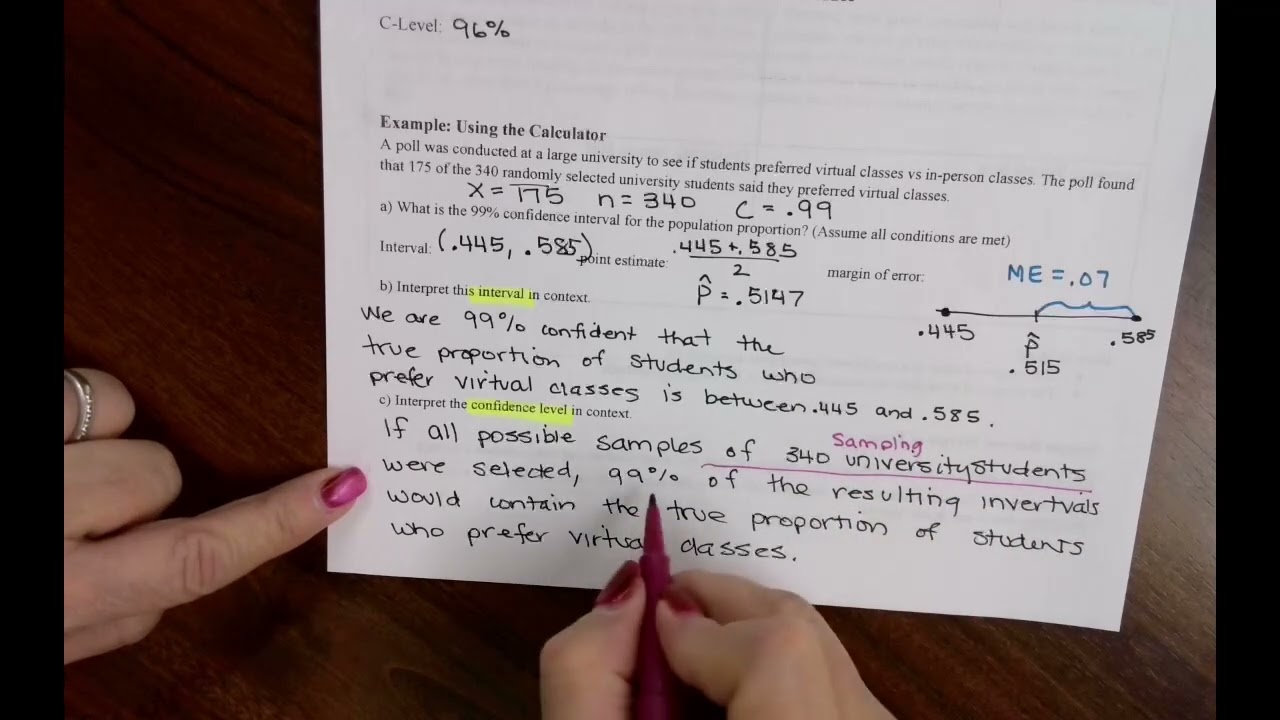 C-Level: 96%
Example: Using the Calculator
A poll was conducted at a large university to see if students preferred virtual classes vs in-person classes. The poll found
that 175 of the 340 randomly selected university students said they preferred virtual classes.
X = 175 n = 340 C = .99
a) What is the 99% confidence interval for the population proportion? (Assume all conditions are met)
Interval: (.445, .585) point estimate: .445+.585 margin of error: ME = .07
2
p̂ = .5147
b) Interpret this interval in context.
.445 p̂ .585
.515
We are 99% confident that the
true proportion of students who
prefer virtual classes is between .445 and .585.
c) Interpret the confidence level in context.
Sampling
If all possible samples of 340 university students
were selected, 99% of the resulting invertvals
would contain the true proportion of students
who prefer virtual classes.